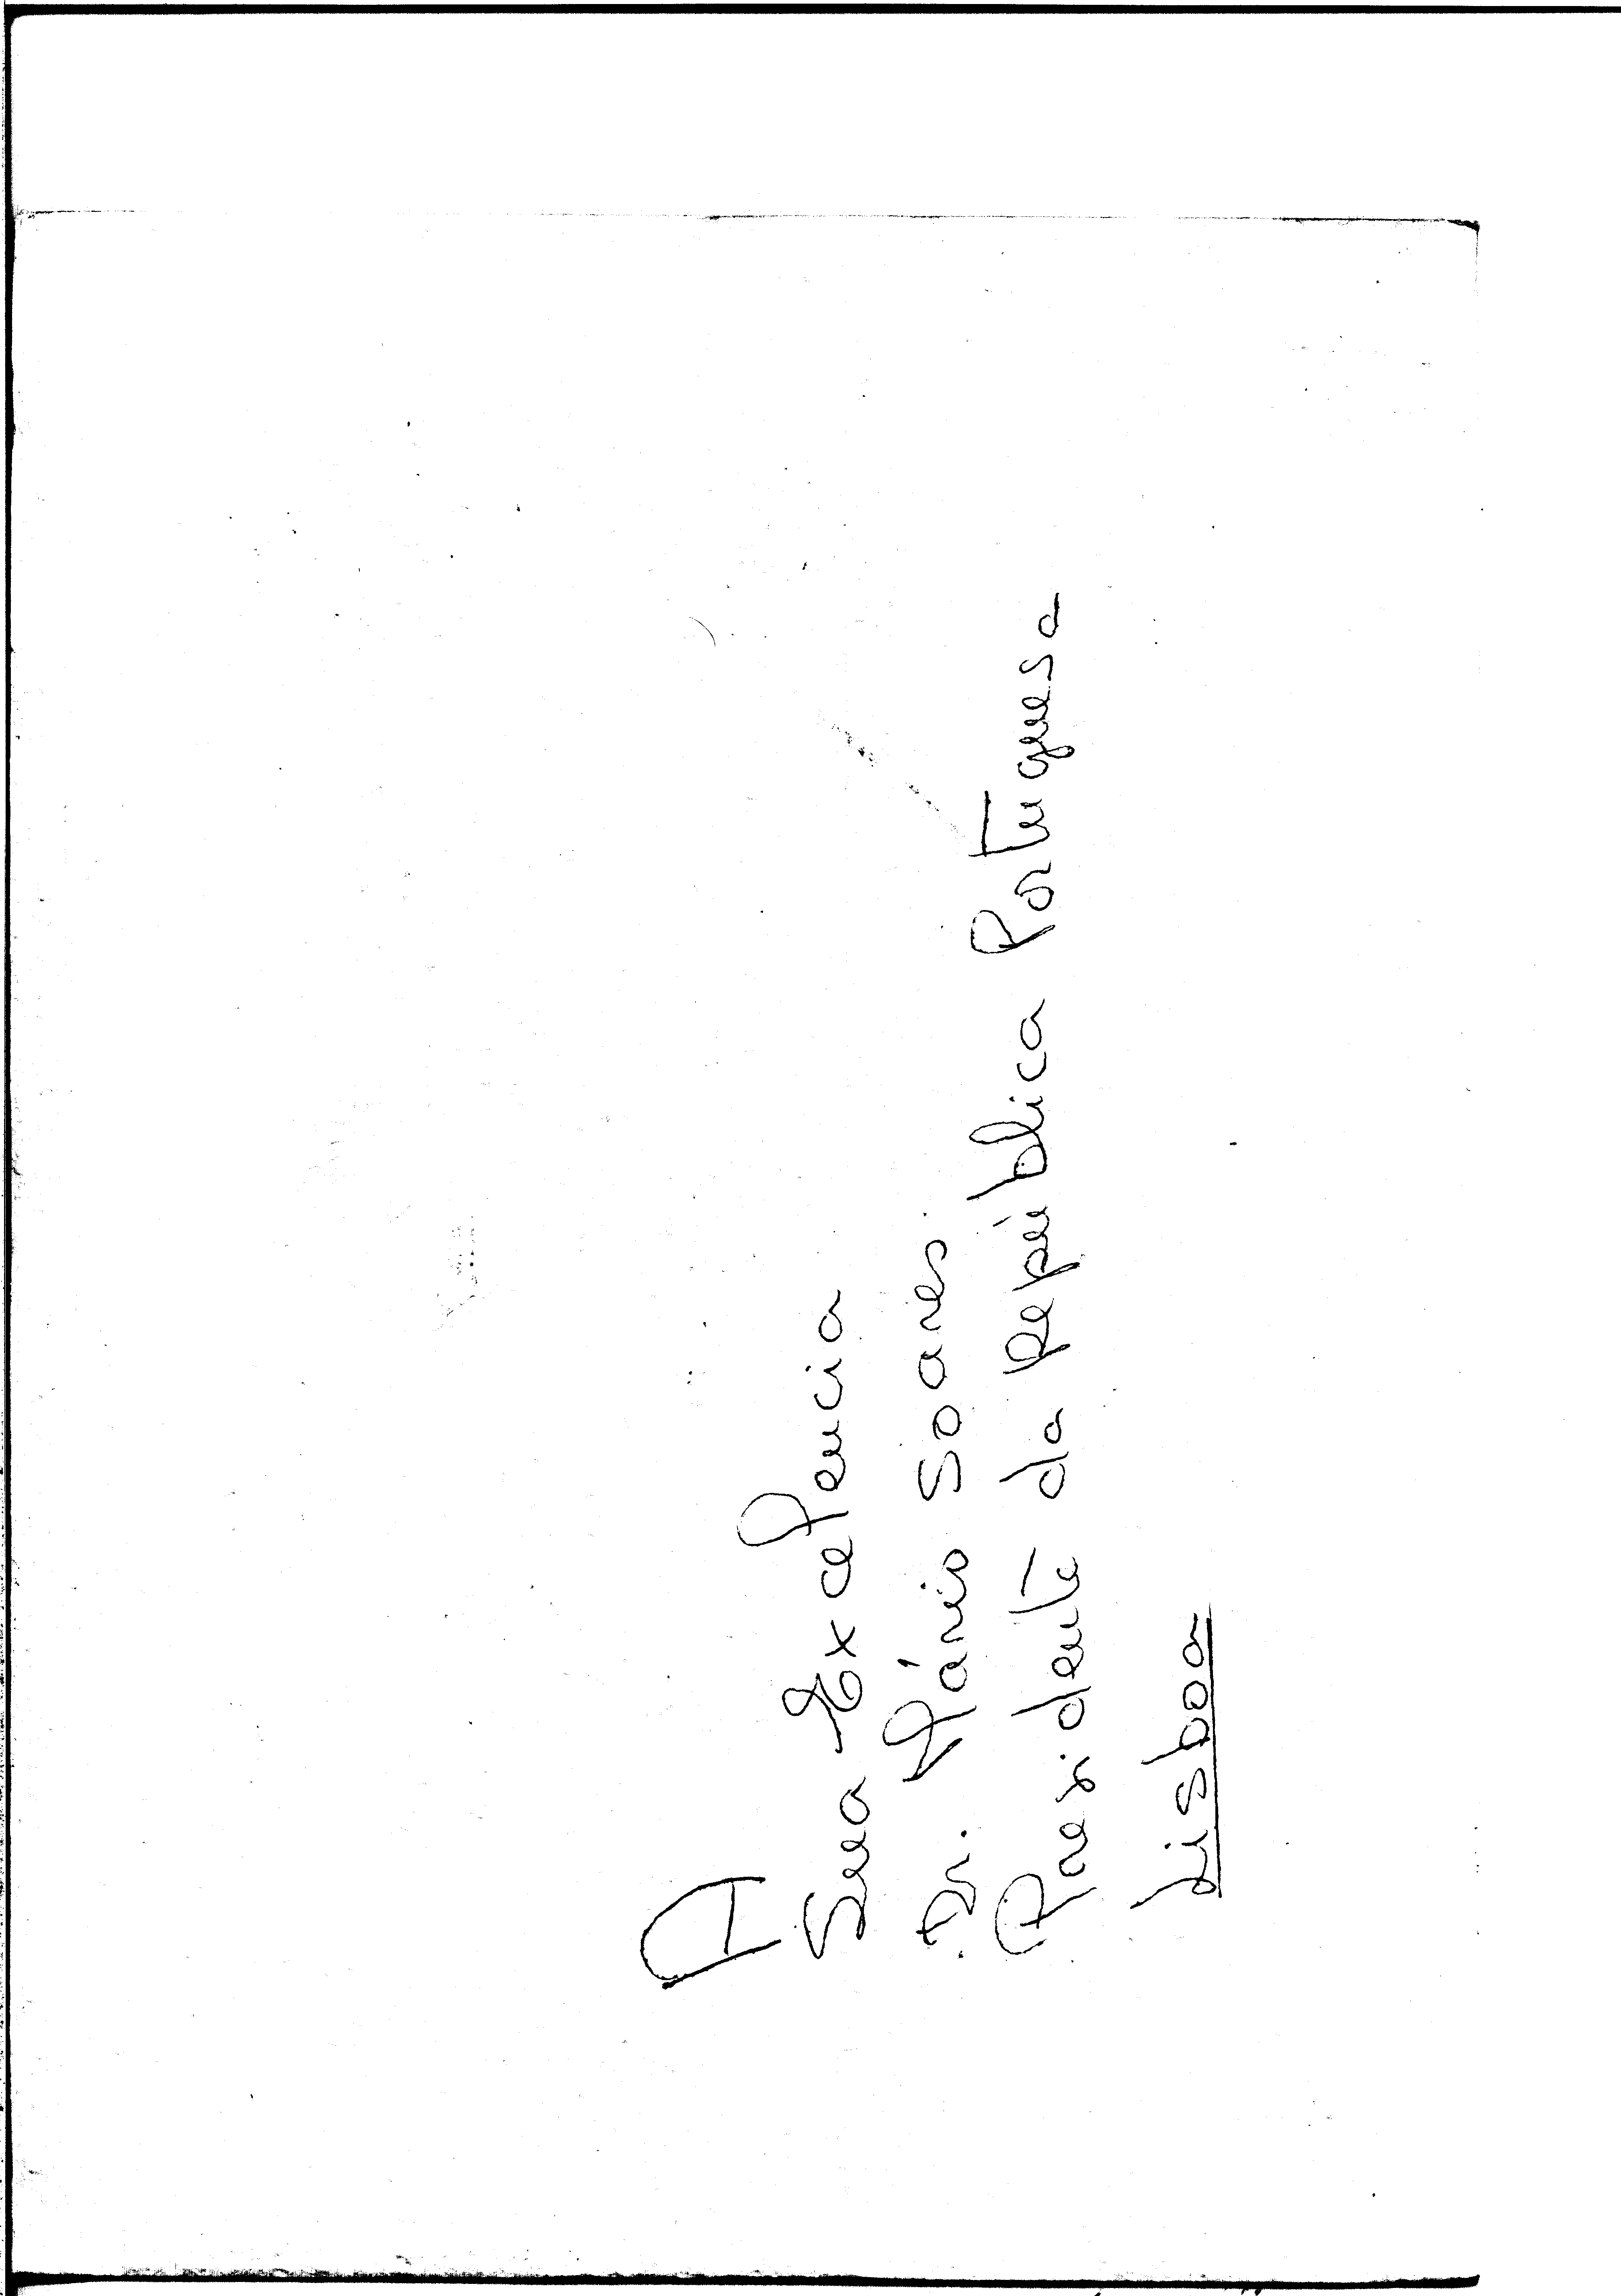 A
Sua Excelencia
Dr. Mário Soares
Presidente da República Portuguesa
Lisboa